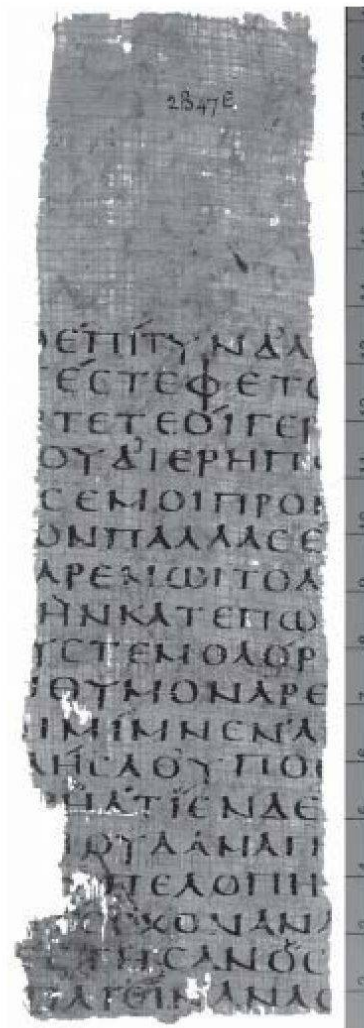 2B47E
ΕΠΙΤΥΝΔΑΛ
ΕϹΤΕΦΕΤΟ
ΤΕΤΕΟΙΓΕΡ
ΟΥΔΙΕΡΗΠ
ϹΕΜΟΙΠΡΟΝ
ΟΝΠΑΛΛΑϹΕ
ΑΡΕΝΩΙΤΟΛ
ΗΝΚΑΤΕΠΩ
ΥϹΤΕΜΟΛΟΡ
ΘΥΜΟΝΑΡΕ
ΙΜΙΜΝΕΝΑ
ΗϹΑΟΥΠΟΘ
ΗΑΤΙΕΝΔΕ
ΟΥΛΑΝΑΓ
ΠΕΛΟΠΗ
ϹΧΟΝΑΝΑ
ϹΤΗϹΑΝΟϹ
ΑΓΕΙΝΑΝΑϹ